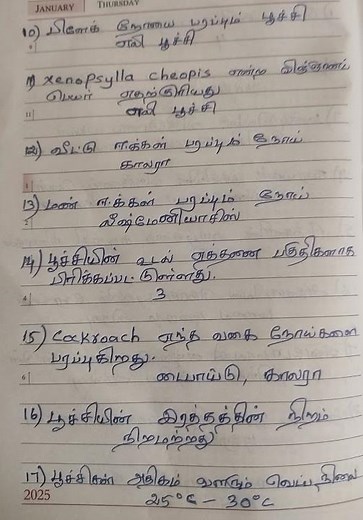 JANUARY THURSDAY
10) பிளேக் நோயை பரப்பும் பூச்சி
எலி பூச்சி
11) xenopsylla cheopis என்ற விஞ்ஞானப்
பெயர் எதற்குரியது
எலி பூச்சி
12) வீட்டு ஈக்கள் பரப்பும் நோய்
காலரா
13) மண் ஈக்கள் பரப்பும் நோய்
லீஷ்மேனியாசிஸ்
14) பூச்சியின் உடல் எத்தனை பகுதிகளாக
பிரிக்கப்பட்டுள்ளது.
3
15) Cockroach எந்த வகை நோய்களை
பரப்புகிறது.
டைபாய்டு, காலரா
16) பூச்சியின் இரத்தத்தின் நிறம்
நிறமற்றது
17) பூச்சிகள் அதிகம் வளரும் வெப்பநிலை
2025 25°C - 30°C